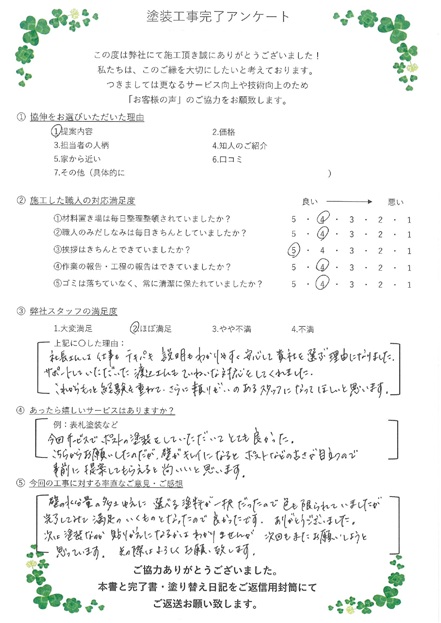 塗装工事完了アンケート
この度は弊社にて施工頂き誠にありがとうございました！
私たちは、このご縁を大切にしたいと考えております。
つきましては更なるサービス向上や技術向上のため
「お客様の声」のご協力をお願致します。
① 協伸をお選びいただいた理由
1.提案内容 2.価格
3.担当者の人柄 4.知人のご紹介
5.家から近い 6.口コミ
7.その他（具体的に ）
② 施工した職人の対応満足度 良い 悪い
①材料置き場は毎日整理整頓されていましたか？ 5 ・ 4 ・ 3 ・ 2 ・ 1
②職人のみだしなみは毎日きちんとしていましたか？ 5 ・ 4 ・ 3 ・ 2 ・ 1
③挨拶はきちんとできていましたか？ 5 ・ 4 ・ 3 ・ 2 ・ 1
④作業の報告・工程の報告はできていましたか？ 5 ・ 4 ・ 3 ・ 2 ・ 1
⑤ゴミは落ちていなく、常に清潔に保たれていましたか？ 5 ・ 4 ・ 3 ・ 2 ・ 1
③ 弊社スタッフの満足度
1.大変満足 2.ほぼ満足 3.やや不満 4.不満
上記に〇した理由：
社長さんは仕事も テキパキ 説明もわかりやすく安心して 貴社を選ぶ理由になりました。
サポートしていただいた 渡辺さんもていねいな対応をしてくれました。
これからもっと経験を重ねて、さらに頼りがいのあるスタッフになってほしいと思います。
④ あったら嬉しいサービスはありますか？
例：表札塗装など
今回サービスでポストの塗装をしていただいてとても良かった。
こちらからお願いしたのだが、壁がキレイになるとポストなどの古さが目立つので
事前に提案してもらえると尚いいと思います。
⑤ 今回の工事に対する率直なご意見・ご感想
壁の水分量の 選べる塗料が一択だったので色も限られていましたが
完了してみて満足のいくものとなったので良かったです。ありがとうございました。
次は塗装なのか 貼りかえになるかはわかりませんが 次回もまたお願いしようと
思っています。その際はよろしくお願い致します。
ご協力ありがとうございました。
本書と完了書・塗り替え日記をご返信用封筒にて
ご返送お願い致します。